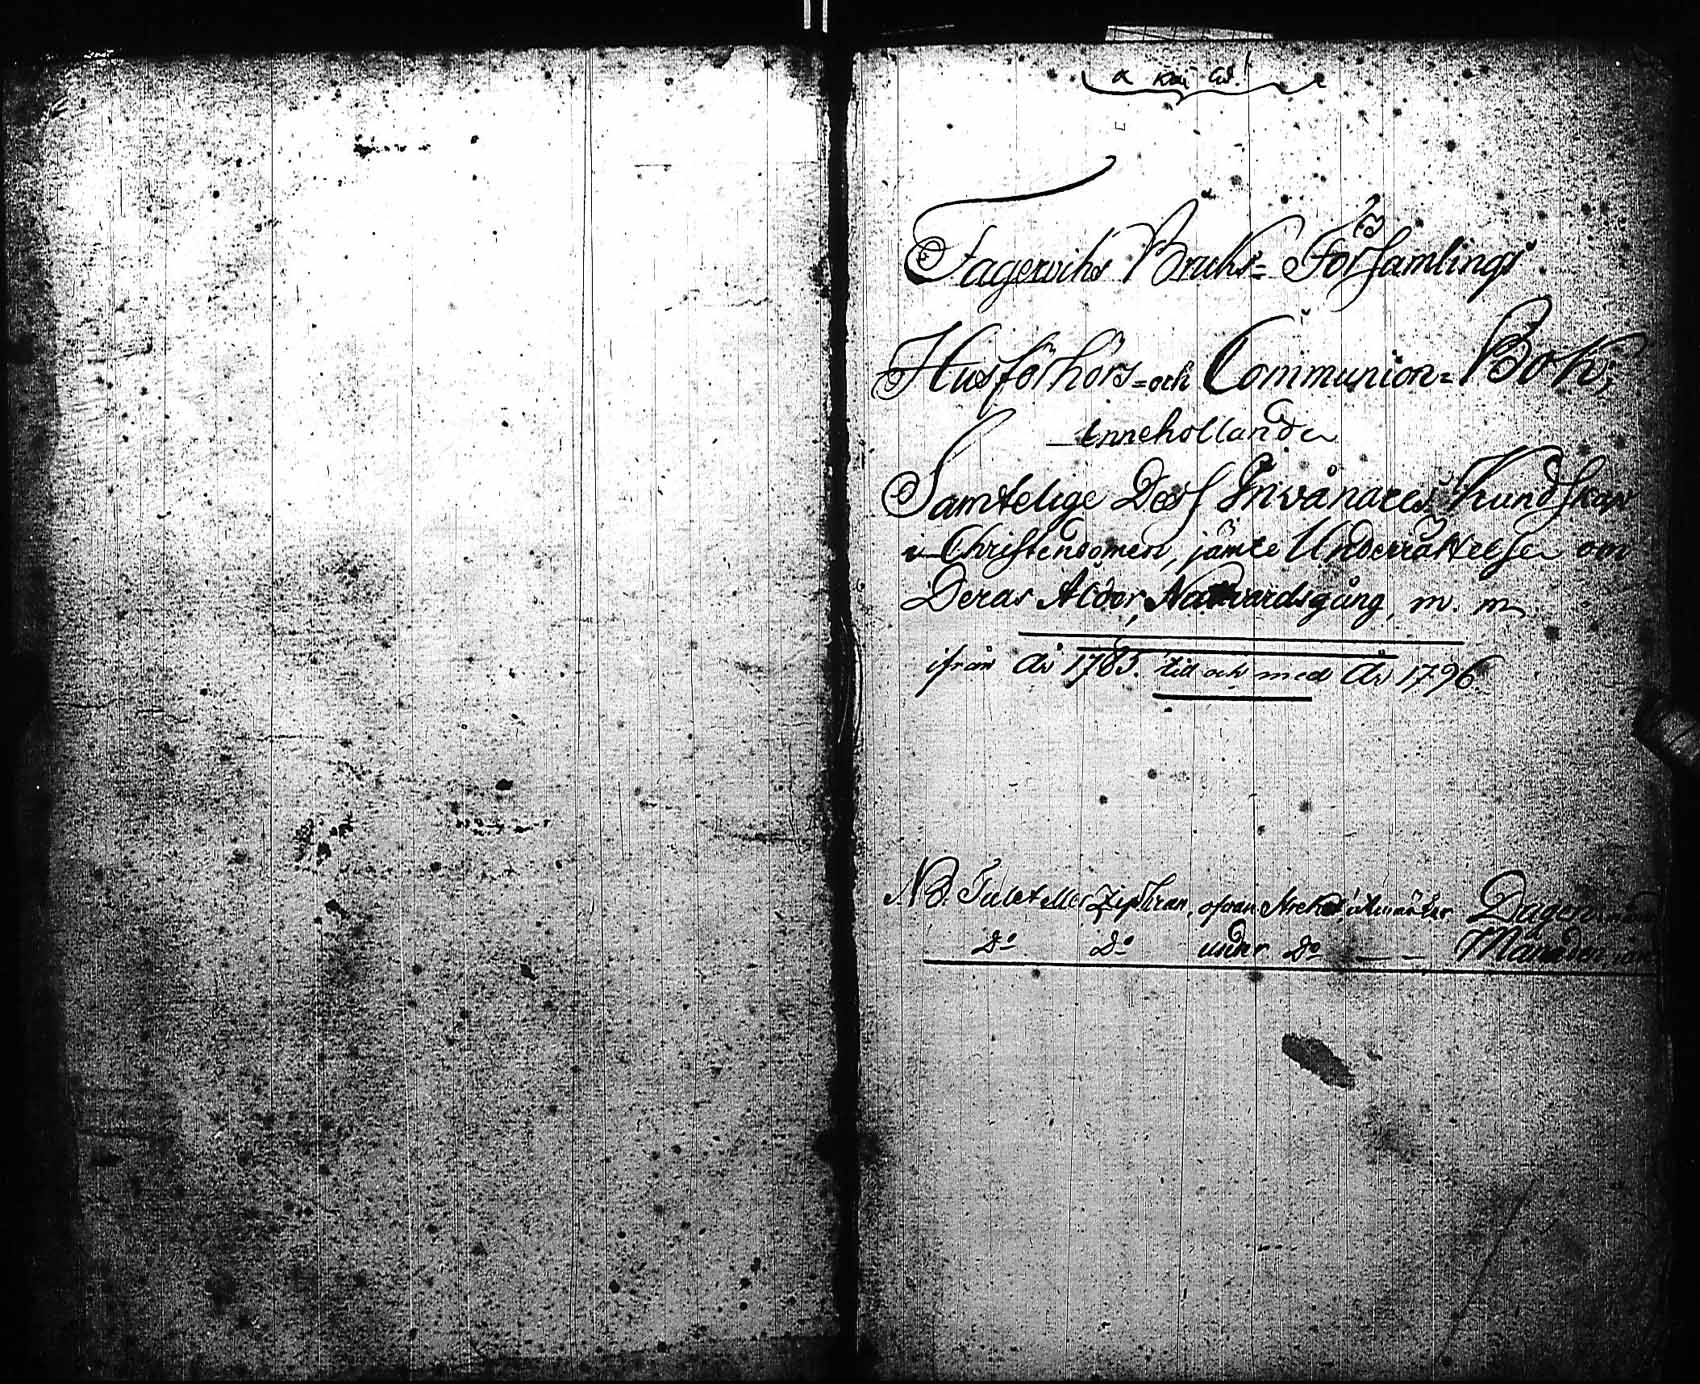 α καὶ ω!
Fagerviks Bruks= Församlings
Husförhörs=och Communion=Bok;
Innehollande
Samtelige Dess Invånares Kundskap
i Christendomen, jämte Underrättelse om
Deras Ålder, Nattvardsgång, m. m.
ifrån År 1785. till och med År 1796.
NB. Talet eller Ziphran, ofvan Strecket utmärker Dagen
Do Do under Do — — Månaden